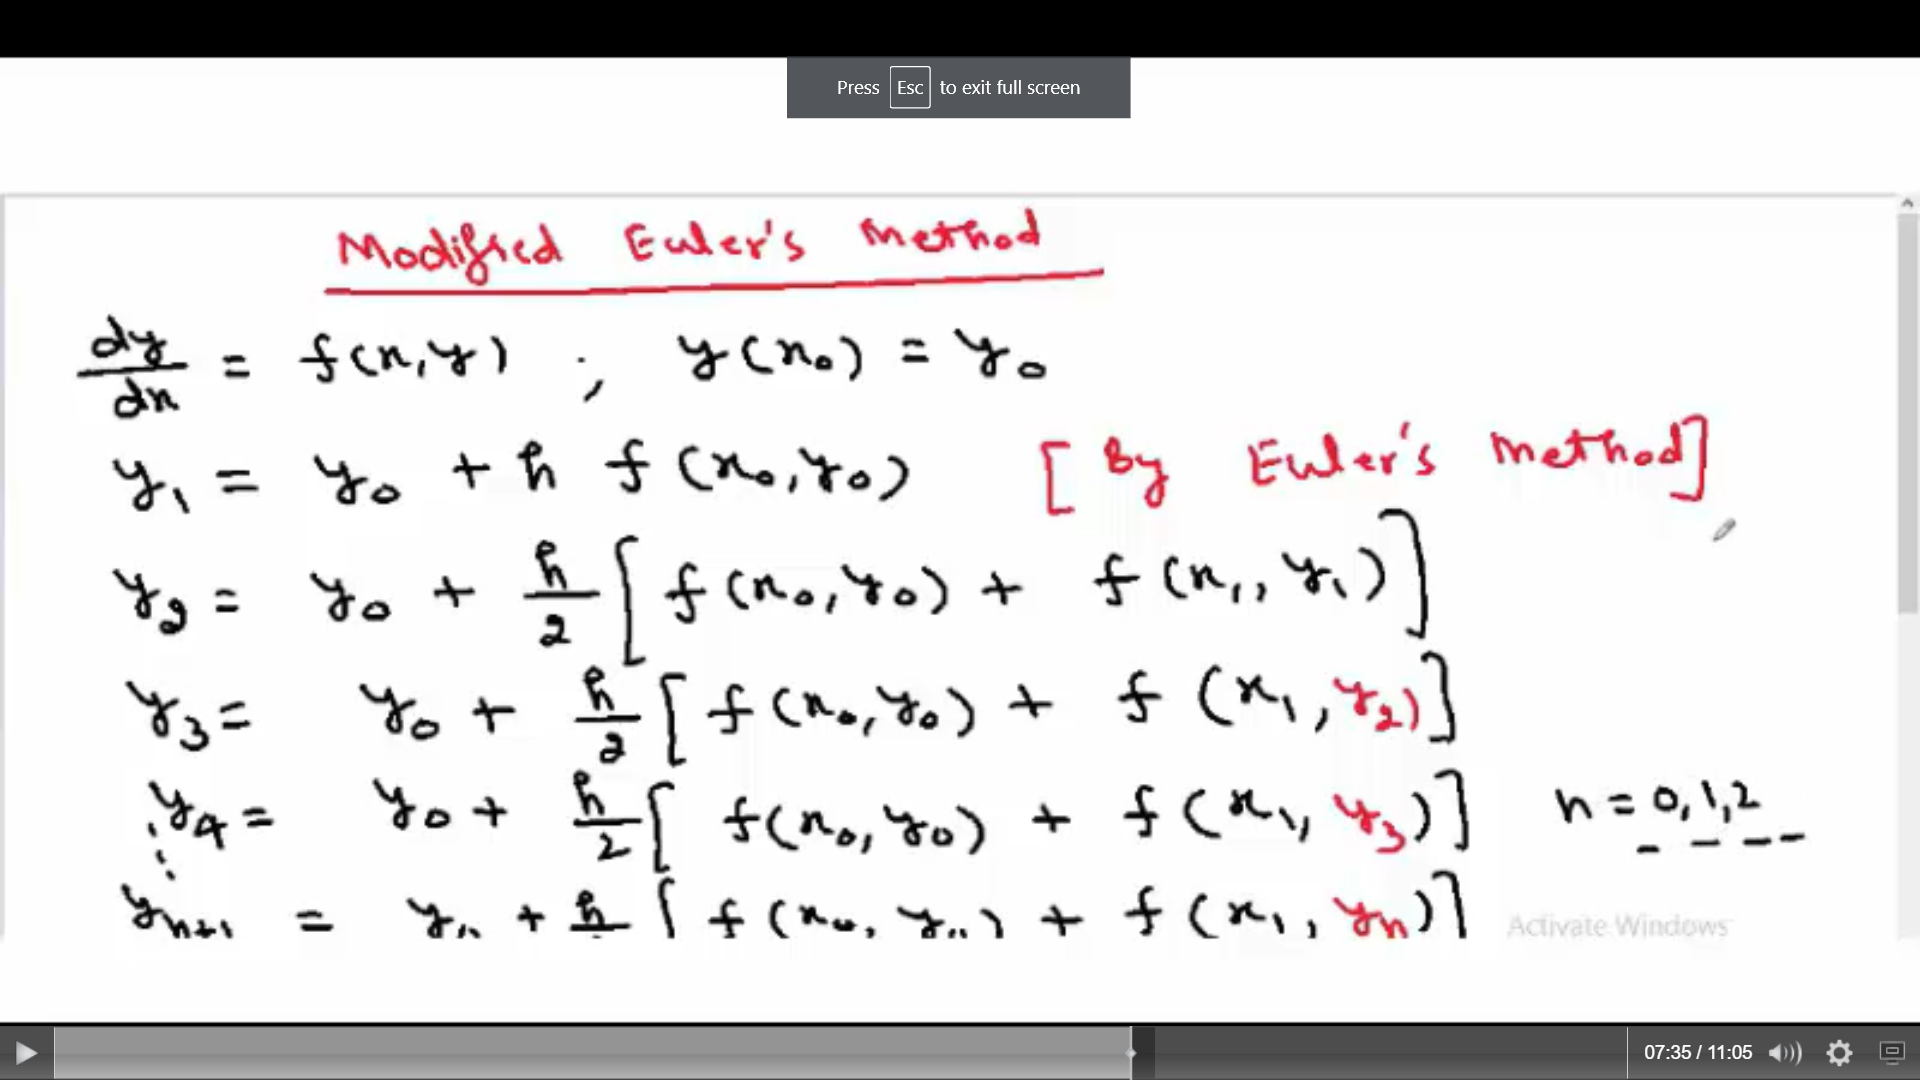 Press Esc to exit full screen
Modified Euler's Method
dy/dx = f(x,y) ; y(x₀) = y₀
y₁ = y₀ + h f(x₀,y₀) [By Euler's Method]
y₂ = y₀ + h/2 [f(x₀,y₀) + f(x₁,y₁)]
y₃ = y₀ + h/2 [f(x₀,y₀) + f(x₁,y₂)]
y₄ = y₀ + h/2 [f(x₀,y₀) + f(x₁,y₃)] n = 0,1,2 - - - -
yₙ₊₁ = y₀ + h [f(x₀,y₀) + f(x₁,yₙ)]
Activate Windows
07:35 / 11:05